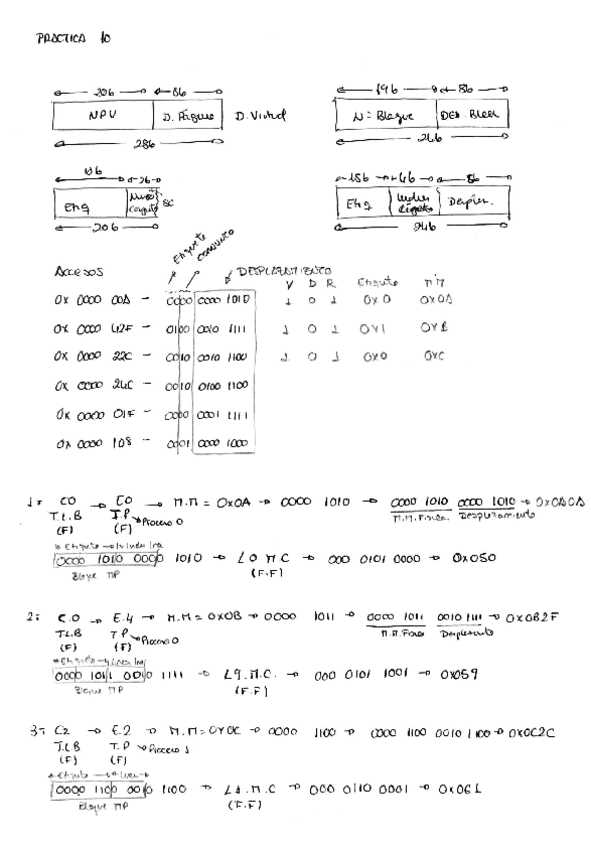 PRACTICA 10
20b 8b
NPV D. Página D. Virtual
28b
19b 8b
Nº Bloque DES. Block
24b
2b
Etiq
20b
15b 4b 8b
Etiq Desplaz.
24b
Etiqueta conjunto
Accesos DESPLAZAMIENTO V D R Etiqueta MM
0x 0000 00A - 0000 0000 1010 1 0 1 0x0 0x0A
0x 0000 42F - 0100 0010 1111 1 0 1 0x1 0xB
0x 0000 22C - 0010 0010 1100 1 0 1 0x0 0xC
0x 0000 24C - 0010 0100 1100
0x 0000 01F - 0000 0001 1111
0x 0000 108 - 0001 0000 1000
1: C0 → E0 → M.M = 0x0A → 0000 1010 → 0000 1010 0000 1010 → 0x0A0A
T.L.B T.P Proceso 0 M.M. Física Desplazamiento
(F) (F)
0000 1010 0000 1010 → L0 M.C → 000 0101 0000 → 0x050
Bloque MP (F.F)
2: C.0 → E.4 → M.M = 0x0B → 0000 1011 → 0000 1011 0010 1111 → 0x0B2F
T.L.B T.P Proceso 0 M.M. Física Desplazamiento
(F) (F)
0000 1011 0010 1111 → L9. M.C. → 000 0101 1001 → 0x059
Bloque MP (F.F)
3: C2 → E.2 → M.M = 0x0C → 0000 1100 → 0000 1100 0010 1100 → 0x0C2C
T.L.B T.P Proceso 1
(F) (F)
0000 1100 0010 1100 → L1. M.C → 000 0110 0001 → 0x061
Bloque MP (F.F)